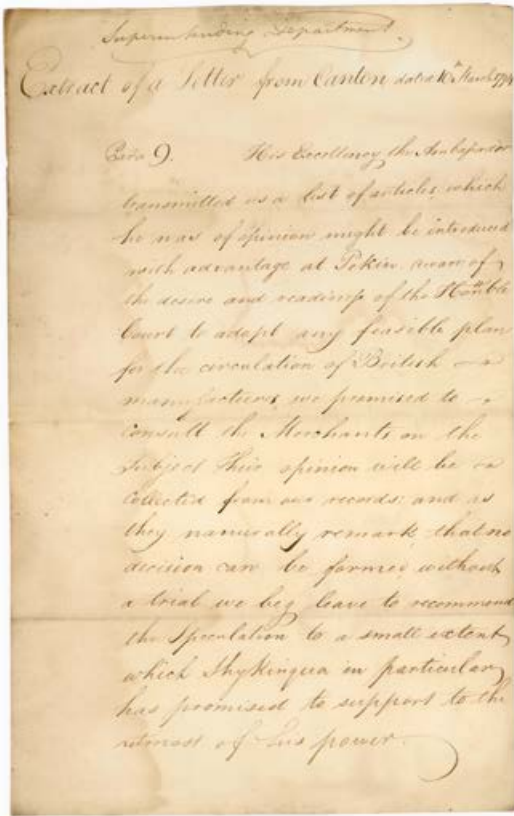 Superintending Department.
Extract of a Letter from Canton dated 10th March 1794
Para 9. His Excellency the Ambassador
transmitted us a list of articles which
he was of opinion might be introduced
with advantage at Pekin, aware of
the desire and readiness of the Honble
Court to adopt any feasible plan
for the circulation of British
manufactures, we promised to
consult the Merchants on the
subject Their opinion will be
collected from our records: and as
they naturally remark, that no
decision can be formed without
a trial we beg leave to recommend
the Speculation to a small extent
which Shykinqua in particular
has promised to support to the
utmost of his power.